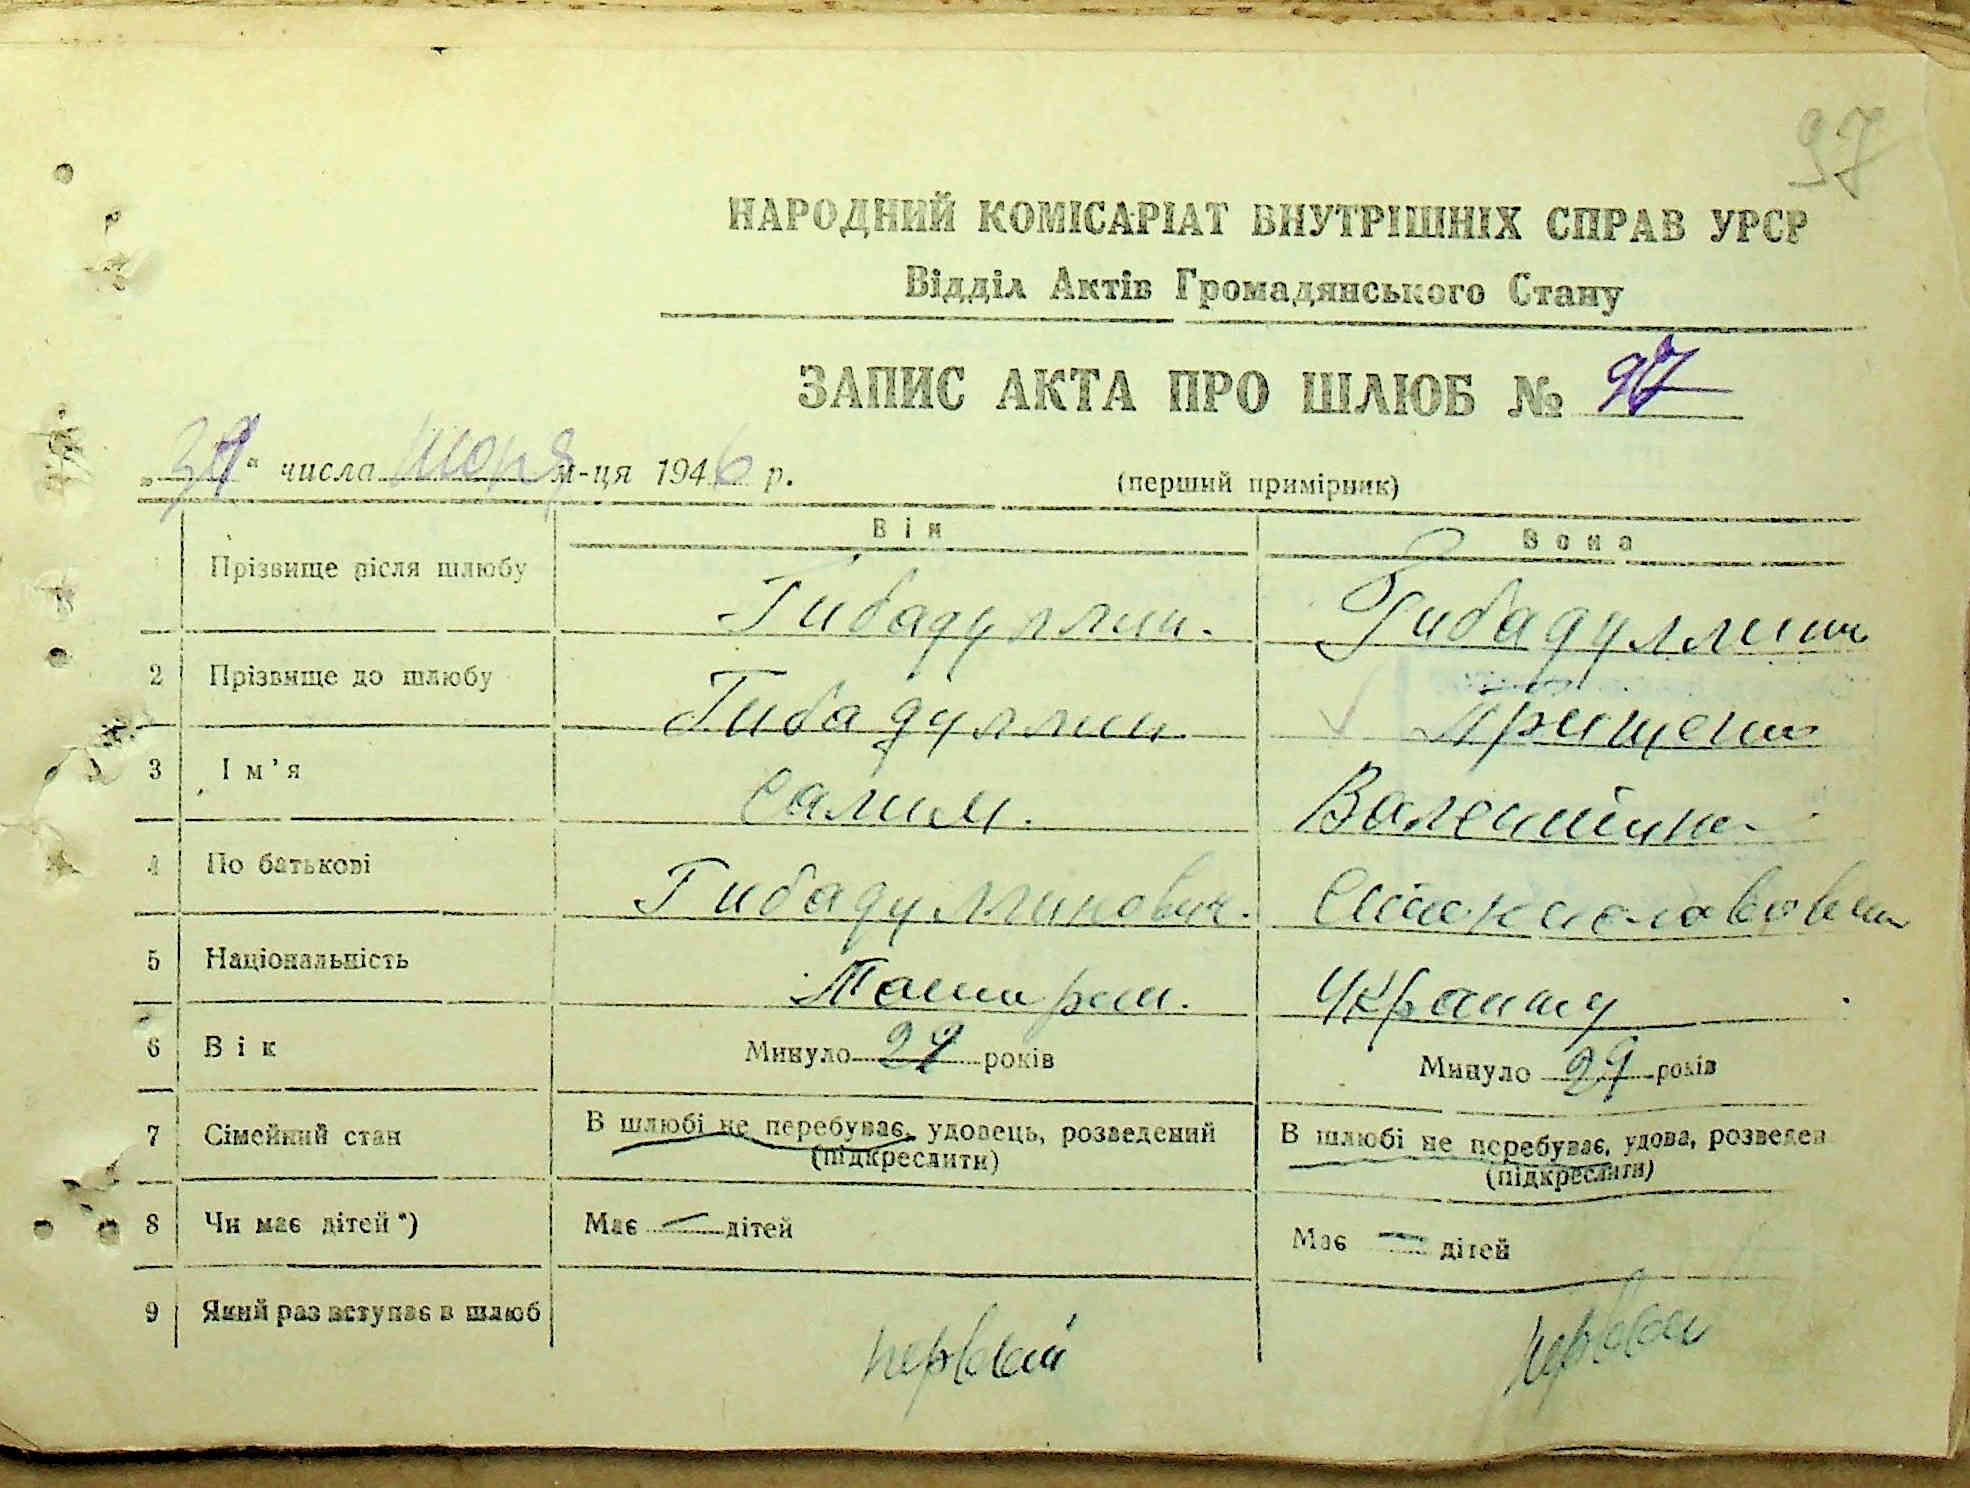 97
НАРОДНИЙ КОМІСАРІАТ ВНУТРІШНІХ СПРАВ УРСР
Відділ Актів Громадянського Стану
ЗАПИС АКТА ПРО ШЛЮБ № 97
" " числа м-ця 1946 р. (перший примірник)
Він Вона
Прізвище після шлюбу Гибадуллин. Гибадуллин
2 Прізвище до шлюбу Гибадуллин
3 Ім'я Салим. Валентина
4 По батькові Гибадуллинович. Станиславовна
5 Національність
6 Вік Минуло 29 років Минуло 29 років
7 Сімейний стан В шлюбі не перебуває, удовець, розведений В шлюбі не перебуває, удова, розведен
(підкреслити) (підкреслити)
8 Чи має дітей *) Має — дітей Має — дітей
9 Який раз вступає в шлюб первый первый